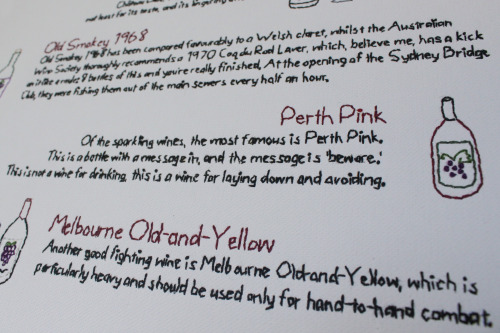 not least for its taste, and its lingering
Old Smokey 1968
Old Smokey 1968 has been compared favourably to a Welsh claret, whilst the Australian
Wine Society thoroughly recommends a 1970 Coq du Rod Laver, which, believe me, has a kick
on it like a mule: 8 bottles of this and you're really finished. At the opening of the Sydney Bridge
Club, they were fishing them out of the main sewers every half an hour.
Perth Pink
Of the sparkling wines, the most famous is Perth Pink.
This is a bottle with a message in, and the message is 'beware.'
This is not a wine for drinking, this is a wine for laying down and avoiding.
Melbourne Old-and-Yellow
Another good fighting wine is Melbourne Old-and-Yellow, which is
particularly heavy and should be used only for hand-to-hand combat.